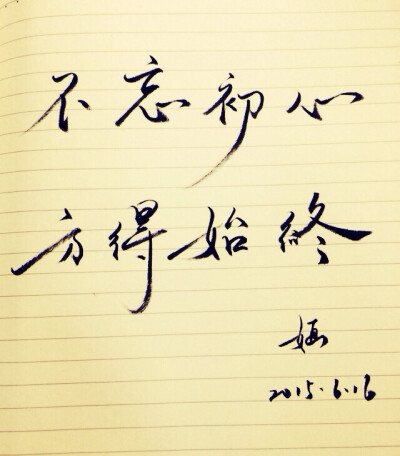 不忘初心
方得始終
2015.6.16